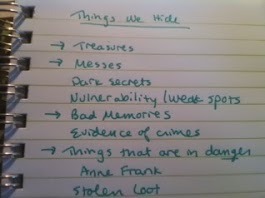 Things We Hide
→ Treasures
→ Messes
Dark secrets
Vulnerability/weak spots
→ Bad Memories
Evidence of crimes
→ Things that are in danger
Anne Frank
Stolen Loot